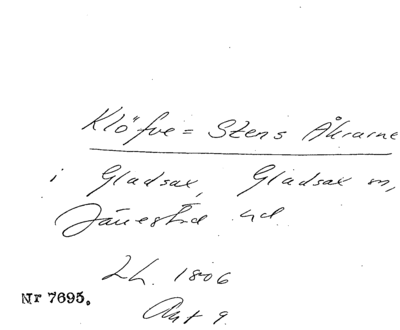 Klöfve = Stens Åkrarne
i Gladsax, Gladsax sn,
Järrestad hd
LH. 1806
Akt 9
Nr 7695.